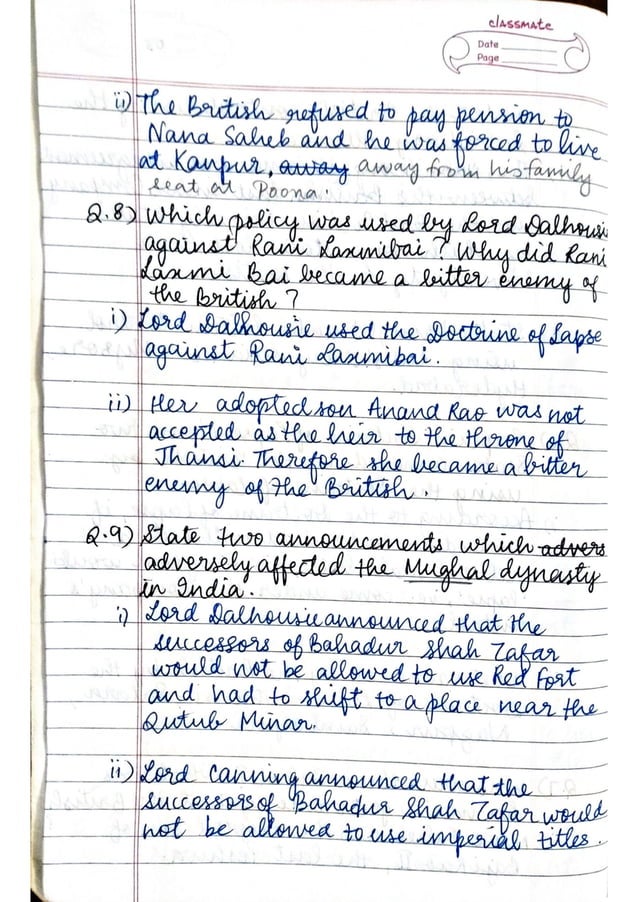 classmate
Date
Page
ii) The British refused to pay pension to
Nana Saheb and he was forced to live
at Kanpur, away away from his family
seat at Poona.
Q.8) Which policy was used by Lord Dalhousi
against Rani Laxmibai? Why did Rani
Laxmi Bai became a bitter enemy of
the British?
i) Lord Dalhousie used the Doctrine of Lapse
against Rani Laxmibai.
ii) Her adopted son Anand Rao was not
accepted as the heir to the throne of
Jhansi. Therefore she became a bitter
enemy of the British.
Q.9) State two announcements which advers
adversely affected the Mughal dynasty
in India.
i) Lord Dalhousie announced that the
successors of Bahadur Shah Zafar
would not be allowed to use Red Fort
and had to shift to a place near the
Qutub Minar.
ii) Lord Canning announced that the
successors of Bahadur Shah Zafar would
not be allowed to use imperial titles.